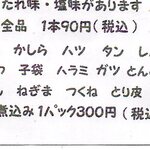 たれ味・塩味があります
全品 1本90円(税込)
かしら ハツ タン レ
つ 子袋 ハラミ ガツ とん
ん ねぎま つくね とり皮
煮込み1パック300円(税込